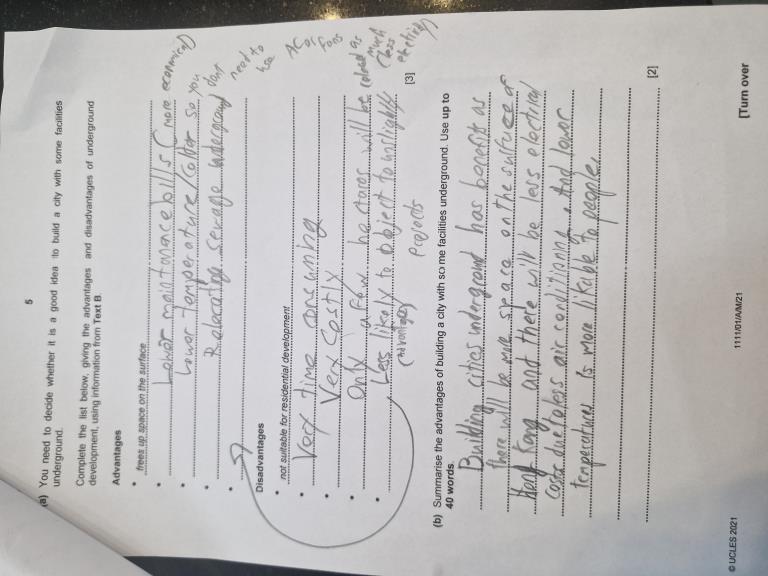 5
(a) You need to decide whether it is a good idea to build a city with some facilities
underground.
Complete the list below, giving the advantages and disadvantages of underground
development, using information from Text B.
Advantages
• frees up space on the surface
• Lower maintanace bills (more economical)
• Lower temperature/colder so you dont need to use AC or fans
• Relocating sewage underground
•
Disadvantages
• not suitable for residential development
• Very time consuming
• Very costly
• Only a few hectares will be
• Less likely to object to unsightly projects
(advantages)
[3]
(b) Summarise the advantages of building a city with some facilities underground. Use up to
40 words.
Building cities underground has benefits as
there will be more space on the surface of
Hong Kong and there will be less electrical
costs due to less air conditionning. And lower
temperatures is more likable to people.
[2]
© UCLES 2021
1111/01/A/M/21
[Turn over